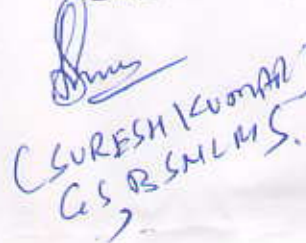 (SURESH KUMAR
GS BSNLMS.